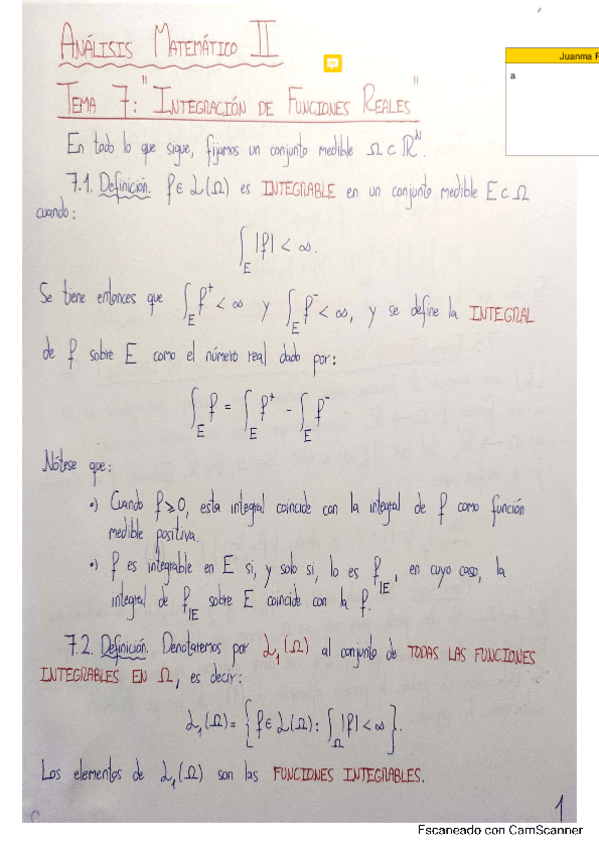 ANÁLISIS MATEMÁTICO II
Juanma F
a
TEMA 7: "INTEGRACIÓN DE FUNCIONES REALES"
En todo lo que sigue, fijamos un conjunto medible Ω ⊂ ℝᴺ.
7.1. Definición. f ∈ ℒ(Ω) es INTEGRABLE en un conjunto medible E ⊂ Ω
cuando:
∫_E |f| < ∞.
Se tiene entonces que ∫_E f⁺ < ∞ y ∫_E f⁻ < ∞, y se define la INTEGRAL
de f sobre E como el número real dado por:
∫_E f = ∫_E f⁺ - ∫_E f⁻
Nótese que:
•) Cuando f ≥ 0, esta integral coincide con la integral de f como función
medible positiva.
•) f es integrable en E si, y solo si, lo es f|E, en cuyo caso, la
integral de f|E sobre E coincide con la f.
7.2. Definición. Denotaremos por ℒ₁(Ω) al conjunto de TODAS LAS FUNCIONES
INTEGRABLES EN Ω, es decir:
ℒ₁(Ω) = {f ∈ ℒ(Ω): ∫_Ω |f| < ∞}.
Los elementos de ℒ₁(Ω) son las FUNCIONES INTEGRABLES.
1
Escaneado con CamScanner